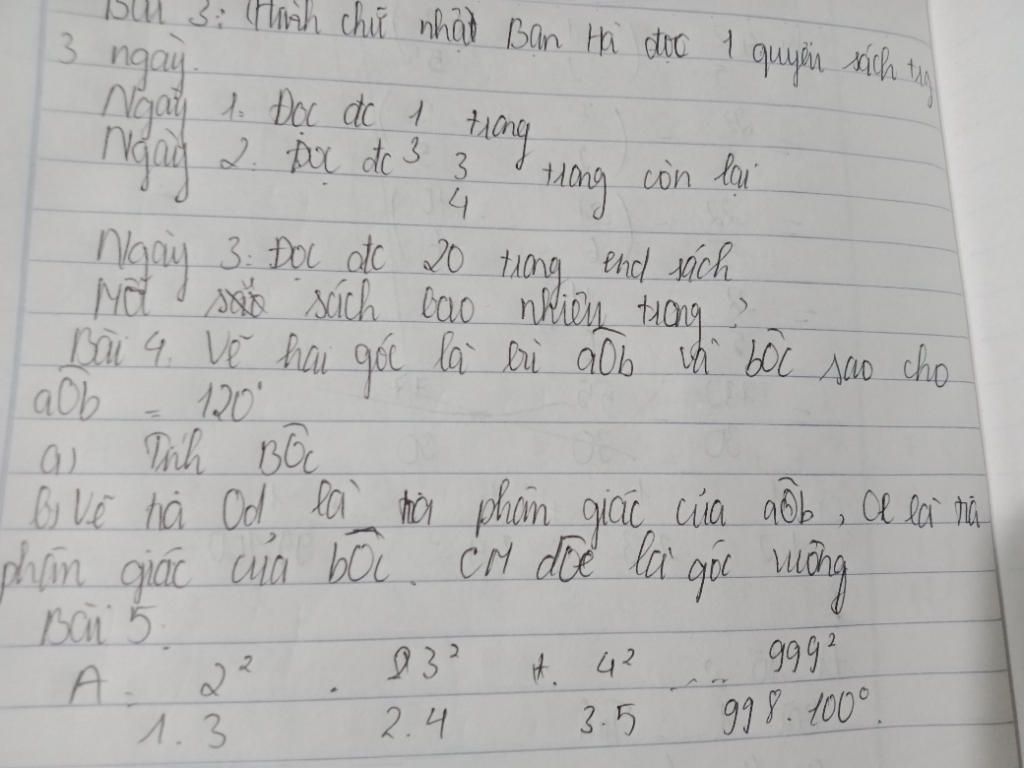 Bài 3: (Hình chữ nhật Bạn Hà đọc 1 quyển sách trg
3 ngày.
Ngày 1. Đọc đc 1 trang
3
Ngày 2. Đọc đc 3 trang còn lại
4
Ngày 3: Đọc đc 20 trang end sách
Hỏi sách bao nhiêu trang?
Bài 4. Vẽ hai góc là aOb và bOc sao cho
aOb = 120°
a) Tính BOc
B) Vẽ tia Od là tia phân giác của aOb, Oe là tia
phân giác của bOc. CM dOe là góc vuông
Bài 5.
A = 2² . 3² . 4² ..... 999²
1.3 2.4 3.5 998.100°.